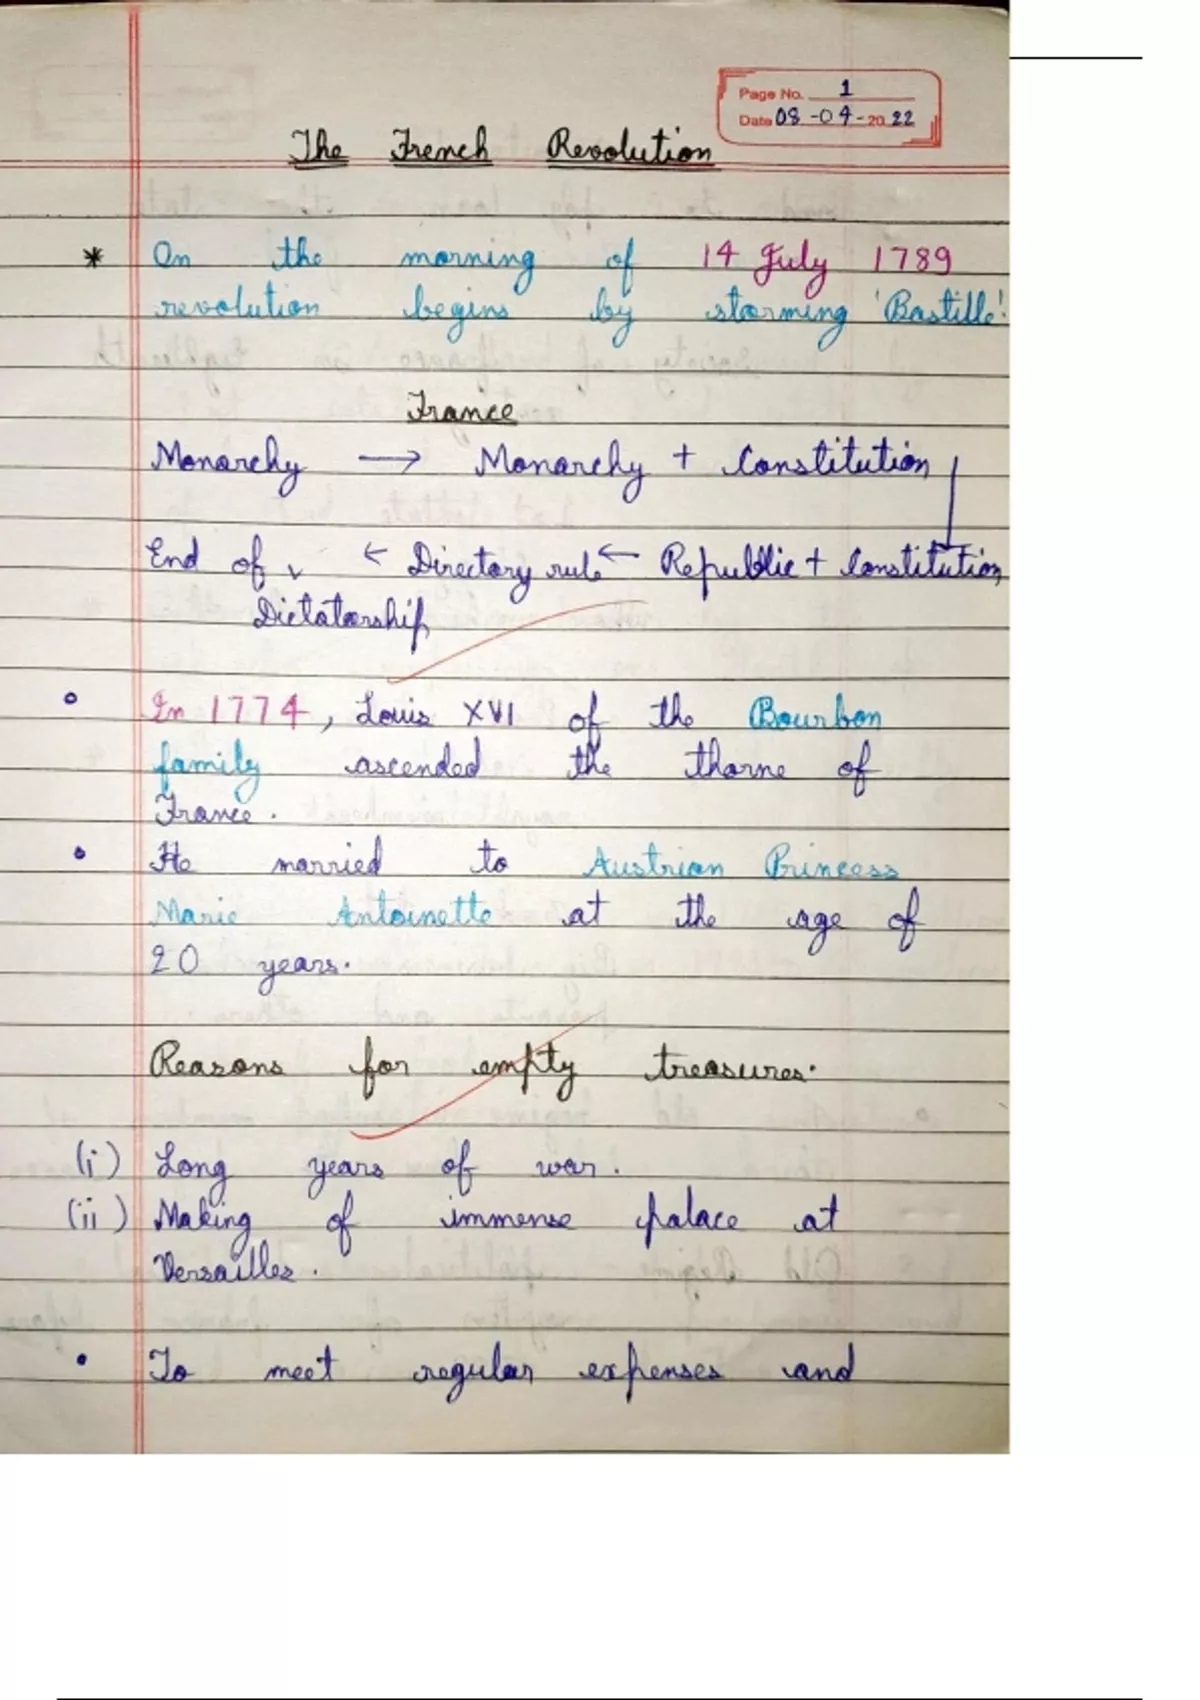 Page No. 1
Date 08-04-2022
The French Revolution
* On the morning of 14 July 1789
revolution begins by storming 'Bastille'.
France
Monarchy → Monarchy + Constitution
End of ← Directory rule ← Republic + Constitution
Dictatorship
In 1774, Louis XVI of the Bourbon
family ascended the thorne of
France.
He married to Austrian Princess
Marie Antoinette at the age of
20 years.
Reasons for empty treasures.
(i) Long years of war.
(ii) Making of immense palace at
Versailles.
To meet regular expenses and